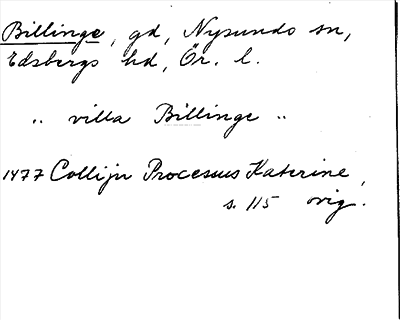 Billinge, gd, Nysunds sn,
Edsbergs hd, Ör. l.
„ villa Billinge „
1477 Collijn Processus Katerine,
s. 115 orig.